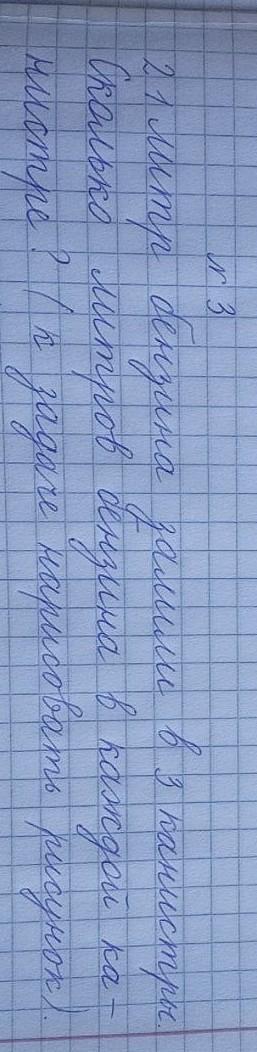 № 3
21 литр бензина залили в 3 канистры.
Сколько литров бензина в каждой ка-
нистре? (к задаче нарисовать рисунок).